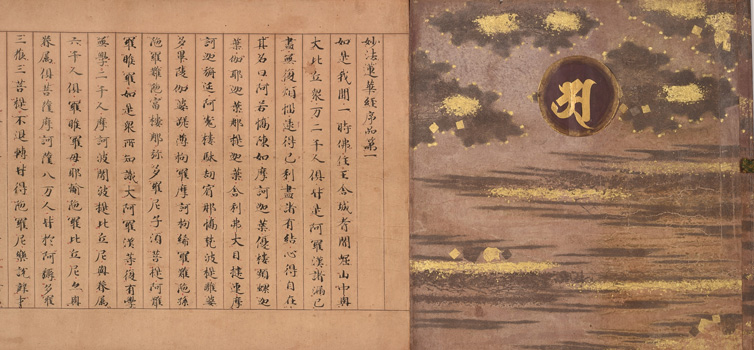 妙法蓮華經序品第一
如是我聞一時佛住王舍城耆闍崛山中與
大比丘衆万二千人俱皆是阿羅漢諸漏已
盡無復煩惱逮得己利盡諸有結心得自在
其名曰阿若憍陳如摩訶迦葉優樓頻螺迦
葉伽耶迦葉那提迦葉舍利弗大目揵連摩
訶迦旃延阿㝹樓馱劫賓那憍梵波提離婆
多畢陵伽婆蹉薄拘羅摩訶拘絺羅難陀孫
陀羅難陀富樓那弥多羅尼子須菩提阿難
羅睺羅如是衆所知識大阿羅漢等復有學
無學二千人摩訶波闍波提比丘尼與眷属
六千人俱羅睺羅母耶輸陀羅比丘尼亦與
眷属俱菩薩摩訶薩八万人皆於阿耨多羅
三藐三菩提不退轉皆得陀羅尼樂說辯才